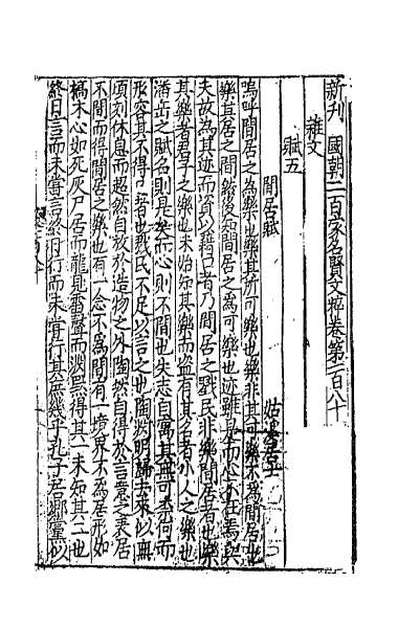 新刊國朝二百家名賢文粹卷第一百八十
雜文
賦五
閒居賦 姑溪居士
嗚呼閒居之為樂也樂其所可樂也樂非其可樂不為閒居也
樂其居之閒然後知閒居之為可樂也迹雖是而心不在焉與
夫故為其迹而資以藉口者乃閒居之戮民非樂閒居者也樂
其樂者君子之樂也未始知其樂而盜有其名者小人之樂也
潘岳之賦名則是矣而心則不閒也失志自寓其無可柰何而
形容其不得已者也戮民不足以言之也陶淵明歸去來以無
頃刻休息而超然自放於造物之外陶然自得於言意之表居
不閒而得閒居之樂也有一念不為閒有一境界不為居形如
槁木心如死灰尸居而龍見雷聲而淵默得其一未知其二也
終日言而未嘗言終日行而未嘗行其庶幾乎孔子居鄉黨似